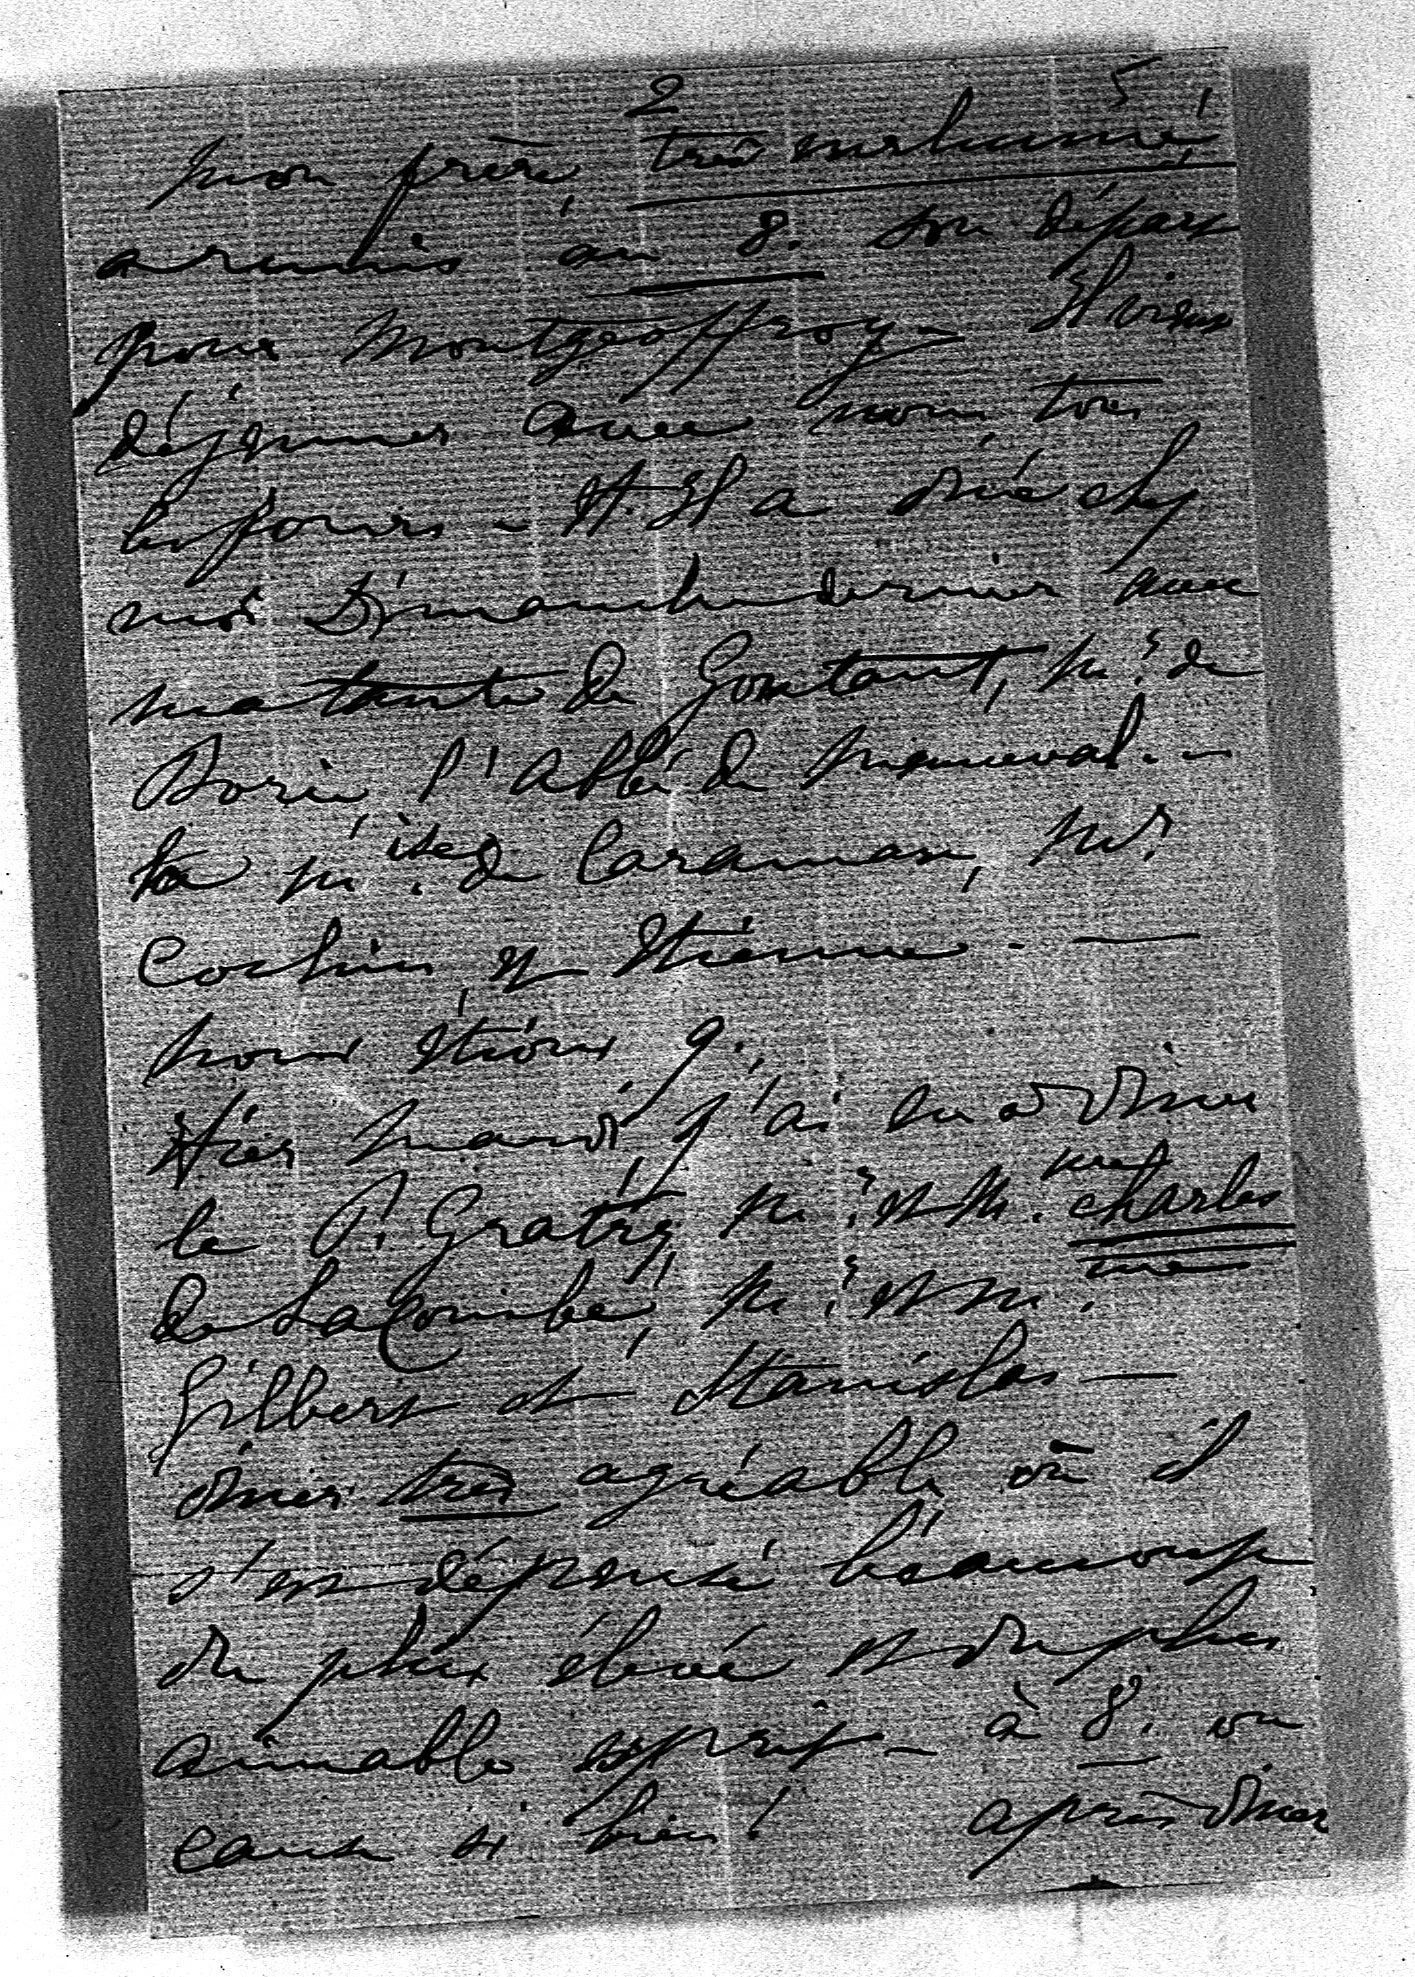 2 5
mon frère, très enrhumé
a remis au 8. son départ
pour Montgeoffroy – Il vient
déjeuner avec nous tous
les jours – Il a diné chez
moi Dimanche dernier avec
ma tante de Gontaut, M.e de
Borie l'abbé de
la M.ise de Caraman, Mr
Cochin et Etienne. —
nous étions 9.
Hier mardi j'ai eu à diner
le P. Gratry, M. et M.me Charles
de Lacombe, M. et M.me
Gilbert et Stanislas —
diner très agréable où il
s'est dépensé beaucoup
du plus élevé et du plus
aimable esprit – à 8. on
cause si bien! après diner